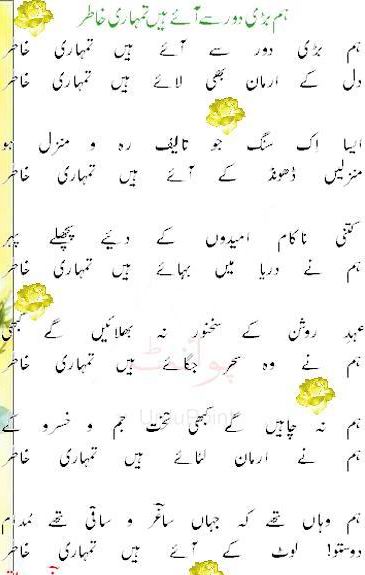 ہم بڑی دور سے آئے ہیں تمہاری خاطر
ہم بڑی دور سے آئے ہیں تمہاری خاطر
دل کے ارمان بھی لائے ہیں تمہاری خاطر
ایسا اک سنگ جو تالیف رہ و منزل ہو
منزلیں ڈھونڈ کے آئے ہیں تمہاری خاطر
کتنی ناکام امیدوں کے دئیے پچھلے پہر
ہم نے دریا میں بہائے ہیں تمہاری خاطر
عہد روشن کے سخنور نہ بھلائیں گے کبھی
ہم نے وہ سحر جگائے ہیں تمہاری خاطر
ہم نہ چاہیں گے کبھی تخت جم و خسرو کے
ہم نے ارمان لٹائے ہیں تمہاری خاطر
ہم وہاں تھے کہ جہاں ساغر و ساقی تھے مدام
دوستو! لوٹ کے آئے ہیں تمہاری خاطر
UrduPoint